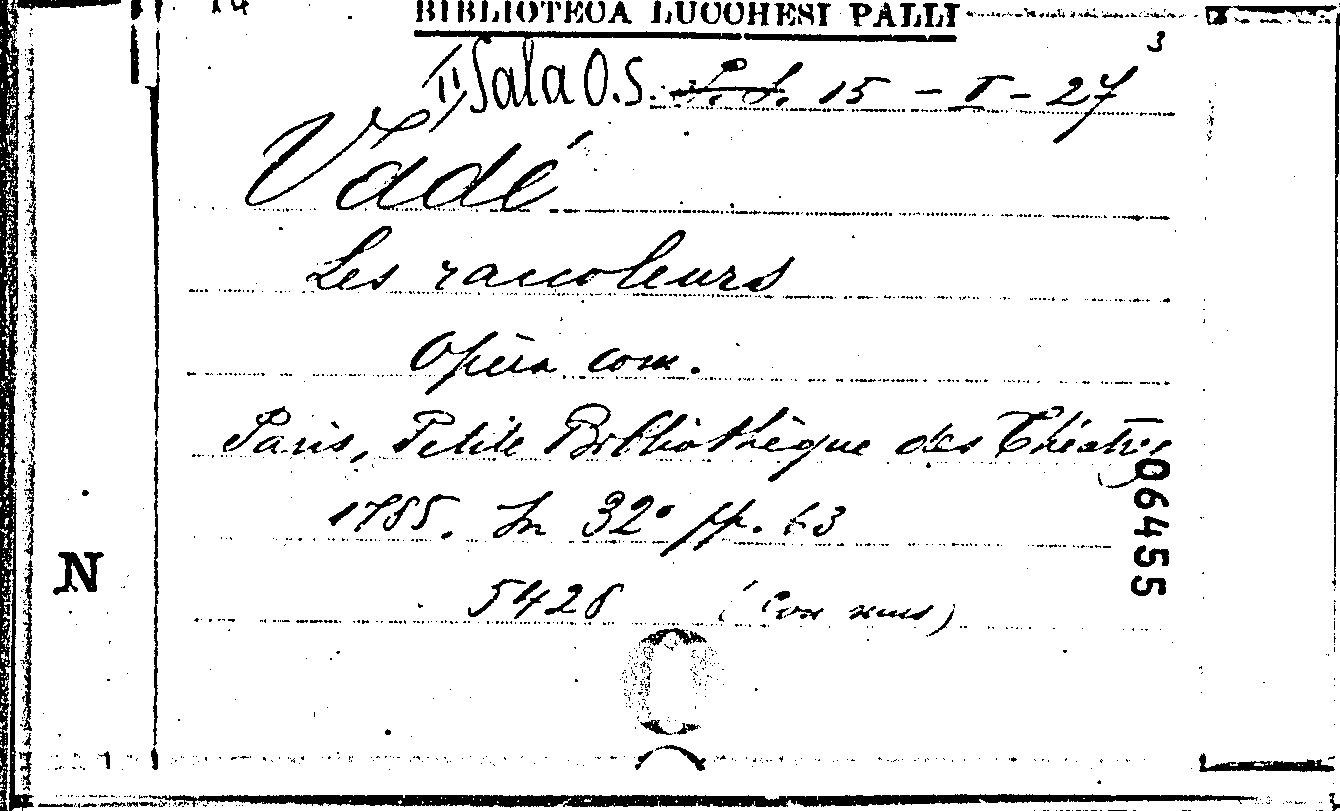 BIBLIOTECA LUCCHESI PALLI
3
II Sala O.S. S.S. 15 - I - 27
Vadé
Les raccoleurs
Opéra com.
Paris, Petite Bibliothèque des Théatres
1785. In 32° pp. 63
06455
N
5428 (Con mus)